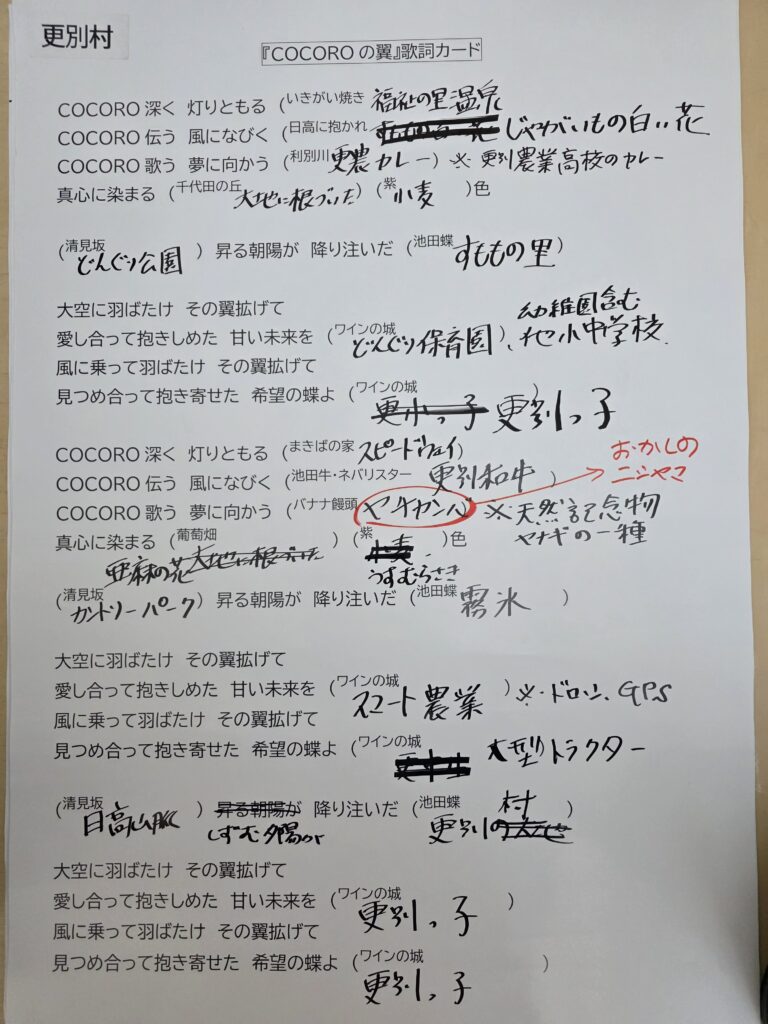 更別村
『COCOROの翼』歌詞カード
COCORO 深く 灯りともる (いきがい焼き 福祉の里温泉
COCORO 伝う 風になびく (日高に抱かれ すももの白い花 じゃがいもの白い花
COCORO 歌う 夢に向かう (利別川 更農カレー) ※更別農業高校のカレー
真心に染まる (千代田の丘 大地に根づいた) (紫 小麦 )色
(清見坂 どんぐり公園 ) 昇る朝陽が 降り注いだ (池田蝶 すももの里)
大空に羽ばたけ その翼拡げて
幼稚園含む
愛し合って抱きしめた 甘い未来を (ワインの城 どんぐり保育園)、地小中学校.
風に乗って羽ばたけ その翼拡げて
見つめ合って抱き寄せた 希望の蝶よ (ワインの城 更小っ子 更別っ子)
COCORO 深く 灯りともる (まきばの家 スピードウェイ)
おかしの
COCORO 伝う 風になびく (池田牛・ネバリスター 更別和牛) ニシヤマ
COCORO 歌う 夢に向かう (バナナ饅頭 ヤチカンバ ※天然記念物
ヤナギの一種
真心に染まる (葡萄畑 亜麻の花 大地に根づいた ) (紫 小麦 )色
うすむらさき
(清見坂 カントリーパーク) 昇る朝陽が 降り注いだ (池田蝶 霧氷 )
大空に羽ばたけ その翼拡げて
愛し合って抱きしめた 甘い未来を (ワインの城 スマート農業 )※・ドローン、GPS
風に乗って羽ばたけ その翼拡げて
見つめ合って抱き寄せた 希望の蝶よ (ワインの城 大型トラクター
(清見坂 日高山脈 ) 昇る朝陽が 降り注いだ (池田蝶 更別の大地 村 )
しずむ夕陽が
大空に羽ばたけ その翼拡げて
愛し合って抱きしめた 甘い未来を (ワインの城 更別っ子 )
風に乗って羽ばたけ その翼拡げて
見つめ合って抱き寄せた 希望の蝶よ (ワインの城 更別っ子 )